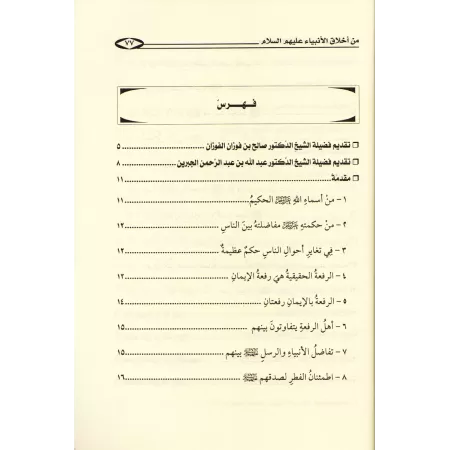 من أخلاق الأنبياء عليهم السلام ٧٧
فهرس
تقديم فضيلة الشيخ الدكتور صالح بن فوزان الفوزان ٥
تقديم فضيلة الشيخ الدكتور عبد الله بن عبد الرحمن الجبرين ٨
مقدمة ١١
١ - من أسماء الله الحكيم ١١
٢ - من حكمته مفاضلته بين الناس ١٢
٣ - في تغاير أحوال الناس حكم عظيمة ١٢
٤ - الرفعة الحقيقية هي رفعة الإيمان ١٣
٥ - الرفعة بالإيمان رفعتان ١٤
٦ - أهل الرفعة يتفاوتون بينهم ١٥
٧ - تفاضل الأنبياء والرسل ﷺ بينهم ١٥
٨ - اطمئنان الفطر لصدقهم ﷺ ١٦